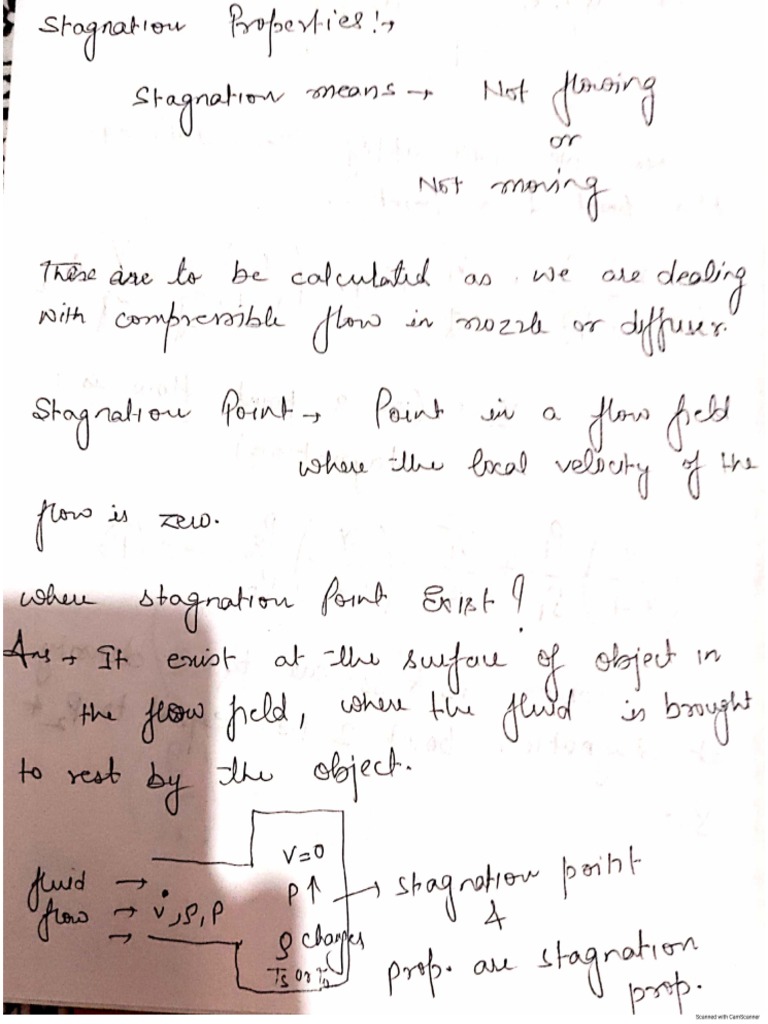 Stagnation Properties:→
Stagnation means → Not flowing
or
Not moving
These are to be calculated as we are dealing
with compressible flow in nozzle or diffuser.
Stagnation Point → Point in a flow field
where the local velocity of the
flow is zero.
where stagnation point Exist?
Ans → It exist at the surface of object in
the flow field, where the fluid is brought
to rest by the object.
fluid →
flow → v, ρ, P
→
V=0
P↑ → stagnation point
&
ρ changes
Ts or To
prop. are stagnation
prop.
Scanned with CamScanner